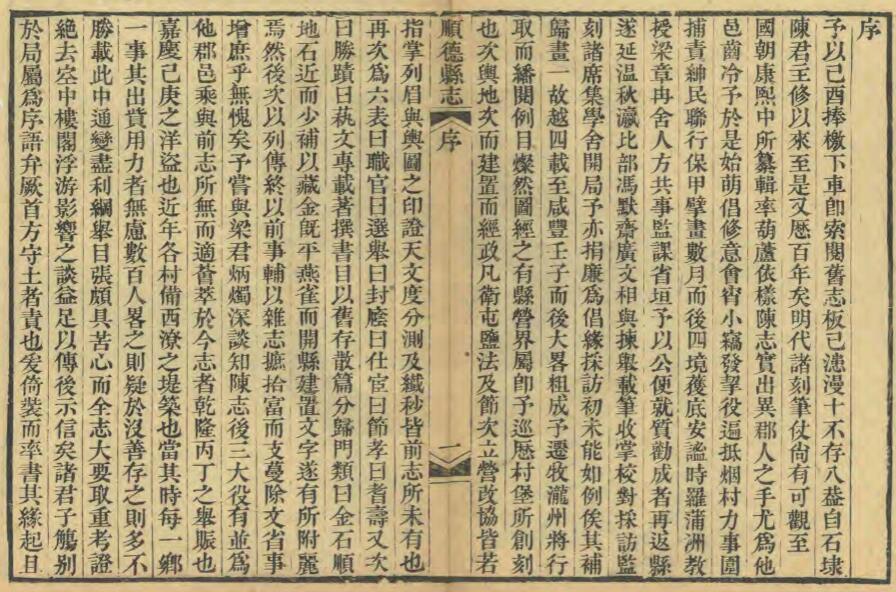 序
予以己酉捧檄下車卽索閱舊志板已漶漫十不存八葢自石埭
陳君王修以來至是又厯百年矣明代諸刻筆仗尙有可觀至
國朝康熙中所纂輯率葫蘆依樣陳志實出異郡人之手尤爲他
邑齒冷予於是始萌倡修意會宵小竊發挐役逼抵烟村力事圍
捕責紳民聯行保甲擘畫數月而後四境獲底安謐時羅蒲洲敎
授梁章冉舍人方共事監課省垣予以公便就質勸成者再返縣
遂延温秋瀛比部馮默齋廣文相與㨂舉載筆收掌校對採訪監
刻諸席集學舍開局予亦捐廉爲倡緣採訪初未能如例俟其補
歸畫一故越四載至咸豐壬子而後大畧粗成予遷牧瀧州將行
取而繙閱例目燦然圖經之有縣營界屬卽予巡厯村堡所創刻
也次輿地次而建置而經政凡衛屯鹽法及節次立營改協皆若
順德縣志
序
一
指掌列眉與輿圖之印證天文度分測及纖秒皆前志所未有也
再次爲六表曰職官曰選舉曰封廕曰仕宦曰節孝曰耆壽又次
曰勝蹟曰秇文專載著撰書目以舊存散篇分歸門類曰金石順
地石近而少補以藏金旣平燕雀而開縣建置文字遂有所附麗
焉然後次以列傳終以前事輔以雜志摭拾富而支蔓除文省事
增庶乎無愧矣予嘗與梁君炳燭深談知陳志後三大役有並爲
他郡邑乘與前志所無而適薈萃於今志者乾隆丙丁之舉賑也
嘉慶己庚之洋盜也近年各村備西潦之堤築也當其時每一鄉
一事其出貲用力者無慮數百人畧之則疑於沒善存之則多不
勝載此中通變盡利綱舉目張頗具苦心而全志大要取重考證
絶去空中樓閣浮游影響之談益足以傳後示信矣諸君子觴別
於局屬爲序語弁厥首方守土者責也爰倚裝而率書其緣起且